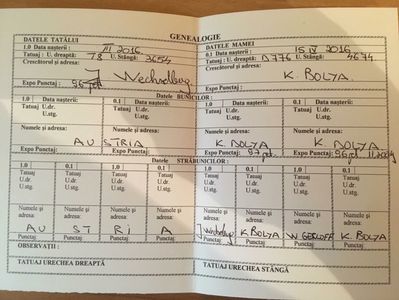 GENEALOGIE
DATELE TATĂLUI
1.0 Data nașterii : III 2016
Tatuaj : U. dreaptă: 78 U. Stângă: 3654
Crescătorul și adresa:
J Wechselberg
Expo Punctaj : 96
DATELE MAMEI
0.1 Data nașterii : 15 IV 2016
Tatuaj : U. dreaptă D 776 U. Stângă: 4674
Crescătorul și adresa :
K. BOLYA.
Expo Punctaj :
Datele BUNICILOR :
1.0 Data nașterii: 0.1 Data nașterii: 1.0 Data nașterii: 0.1 Data nașterii:
Tatuaj Tatuaj Tatuaj Tatuaj
U.dr. U.dr. U.dr. U.dr.
U.stg. U.stg. U.stg. U.stg.
Numele și adresa: Numele și adresa: Numele și adresa: Numele și adresa:
AU STRIA K. BOLYA K. BOLYA
Expo Punctaj: Expo Punctaj: Expo Punctaj: 97 Expo Punctaj: 96
Datele STRĂBUNICILOR :
1.0 0.1 1.0 0.1 1.0 0.1 1.0 0.1
Tatuaj Tatuaj Tatuaj Tatuaj Tatuaj Tatuaj Tatuaj Tatuaj
U.dr. U.dr. U.dr. U.dr. U.dr. U.dr. U.dr. U.dr.
U.stg. U.stg. U.stg. U.stg. U.stg. U.stg. U.stg. U.stg.
Numele și Numele și Numele și Numele și Numele și Numele și Numele și Numele și
adresa: adresa: adresa: adresa: adresa: adresa: adresa: adresa:
AU ST RI A K BOLYA W GERLOFF K. BOLYA
Punctaj: Punctaj: Punctaj: Punctaj: Punctaj: Punctaj: Punctaj: Punctaj:
OBSERVAȚII :
TATUAJ URECHEA DREAPTĂ
TATUAJ URECHEA STÂNGĂ